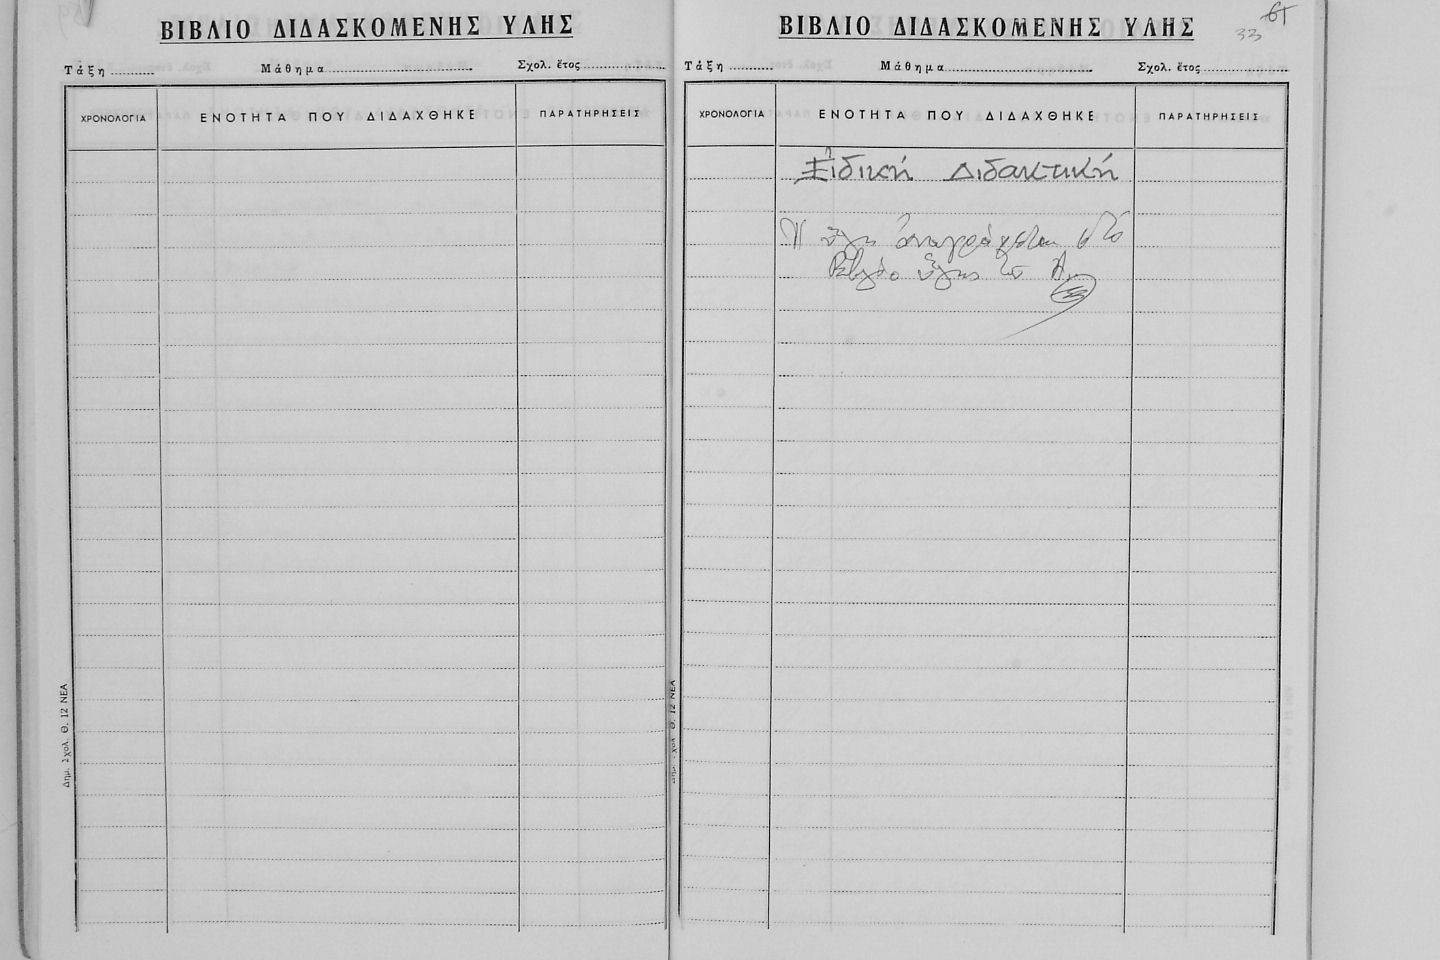 ΒΙΒΛΙΟ ΔΙΔΑΣΚΟΜΕΝΗΣ ΥΛΗΣ
Τάξη .......... Μάθημα .......... Σχολ. ἔτος ..........
ΧΡΟΝΟΛΟΓΙΑ ΕΝΟΤΗΤΑ ΠΟΥ ΔΙΔΑΧΘΗΚΕ ΠΑΡΑΤΗΡΗΣΕΙΣ
Δημ. Σχολ. Θ. 12 ΝΕΑ
33
ΒΙΒΛΙΟ ΔΙΔΑΣΚΟΜΕΝΗΣ ΥΛΗΣ
Τάξη .......... Μάθημα .......... Σχολ. ἔτος ..........
ΧΡΟΝΟΛΟΓΙΑ ΕΝΟΤΗΤΑ ΠΟΥ ΔΙΔΑΧΘΗΚΕ ΠΑΡΑΤΗΡΗΣΕΙΣ
Εἰδική Διδακτική
Ἡ ὕλη ἀναγράφεται στό
Βιβλίο ὕλης τοῦ
Θ. 12 ΝΕΑ